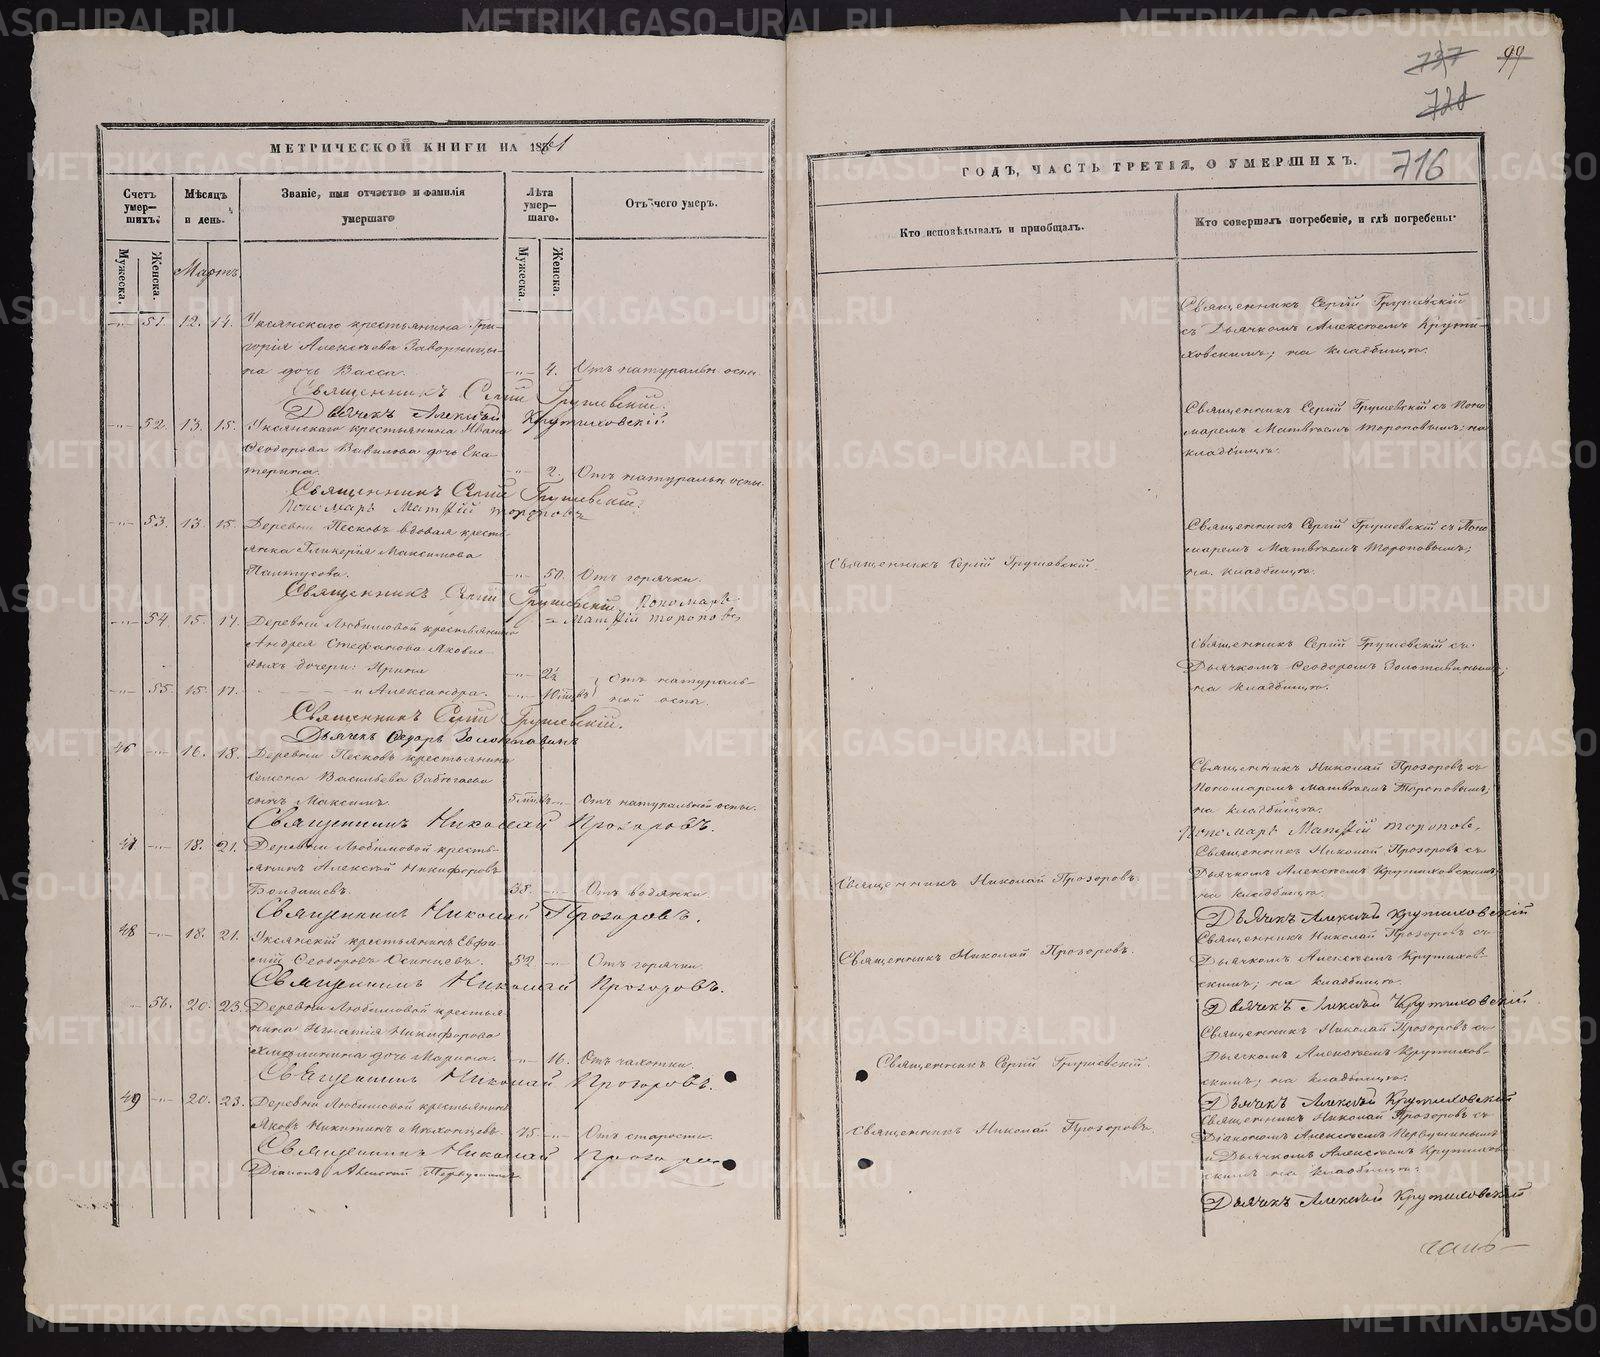 737
99
728
МЕТРИЧЕСКОЙ КНИГИ НА 1861
Счетъ умер-шихъ.
Мѣсяцъ и день.
Званіе, имя отчество и фамилія умершаго
Лѣта умер-шаго.
Отъ чего умеръ.
Мужеска.
Женска.
Мартъ.
Мужеска.
Женска.
51. 12. 14. Уксянскаго крестьянина Гри-
горія Алексѣева Заворницы-
на дочь Васса. 4. Отъ натуральн. оспы.
Священникъ Сергій Грушевскій.
Дьячекъ Алексѣй Крутиховскій
52. 13. 15. Уксянскаго крестьянина Ивана
Ѳеодорова Вавилова дочь Ека-
терина. 2. Отъ натуральн. оспы.
Священникъ Сергій Грушевскій.
Пономарь Матѳій Тороповъ
53. 13. 15. Деревни Песковъ вдовая кресть-
янка Гликерія Максимова
Пантусова. 50. Отъ горячки.
Священникъ Сергій Грушевскій. Пономарь
Матѳій Тороповъ
54. 15. 17. Деревни Любимовой крестьянина
Андрея Стефанова Яковле
выхъ дочери: Ирина 2½
55. 15. 17. и Александра. Отъ натураль-
ной оспы.
Священникъ Сергій Грушевскій.
Дьячекъ Ѳедоръ Золотавинъ
46 16. 18. Деревни Песковъ крестьянина
Семена Васильева
сынъ Максимъ. Отъ натуральной оспы.
Священникъ Николай Прозоровъ.
47 18. 21. Деревни Любимовой кресть-
янинъ Алексѣй Никифоровъ
Болдашевъ. 38. Отъ водянки.
Священникъ Николай Прозоровъ.
48 18. 21. Уксянскій крестьянинъ Евфи-
мій Ѳеодоровъ Осинцевъ. 52. Отъ горячки.
Священникъ Николай Прозоровъ.
56. 20. 23. Деревни Любимовой крестья
нина Игнатія Никифорова
Хмѣлинина дочь Марина. 16. Отъ чахотки.
Священникъ Николай Прозоровъ.
49 20. 23. Деревни Любимовой крестьянинъ
Яковъ Никитинъ 75 Отъ старости.
Священникъ Николай Прозоровъ
Діаконъ Алексѣй Первушинъ
ГОДЪ, ЧАСТЬ ТРЕТІЯ, О УМЕРШИХЪ.
716
Кто исповѣдывалъ и пріобщалъ.
Кто совершалъ погребеніе, и гдѣ погребены.
Священникъ Сергій Грушевскій
съ Дьячкомъ Алексѣемъ Крути-
ховскимъ; на кладбищѣ.
Священникъ Сергій Грушевскій съ Поно
маремъ Матвѣемъ Тороповымъ; на
кладбищѣ.
Священникъ Сергій Грушевскій съ Поно
маремъ Матвѣемъ Тороповымъ;
на кладбищѣ.
Священникъ Сергій Грушевскій.
Священникъ Сергій Грушевскій съ
Дьячкомъ Ѳеодоромъ Золотавинымъ;
на кладбищѣ.
Священникъ Николай Прозоровъ съ
Пономаремъ Матвѣемъ Тороповымъ;
на кладбищѣ.
Пономарь Матѳій Тороповъ,
Священникъ Николай Прозоровъ съ
Дьячкомъ Алексѣемъ Крутиховскимъ;
на кладбищѣ.
Священникъ Николай Прозоровъ.
Дьячекъ Алексѣй Крутиховскій
Священникъ Николай Прозоровъ съ
Дьячкомъ Алексѣемъ Крутихов-
скимъ; на кладбищѣ.
Священникъ Николай Прозоровъ.
Дьячекъ Алексѣй Крутиховскій.
Священникъ Николай Прозоровъ съ
Дьячкомъ Алексѣемъ Крутихов-
скимъ; на кладбищѣ.
Священникъ Сергій Грушевскій.
Дьячекъ Алексѣй Крутиховскій
Священникъ Николай Прозоровъ съ
Діакономъ Алексѣемъ Первушинымъ
и Дьячкомъ Алексѣемъ Крутихов-
скимъ на кладбищѣ.
Священникъ Николай Прозоровъ.
Дьячекъ Алексѣй Крутиховскій
METRIKI.GASO-URAL.RU